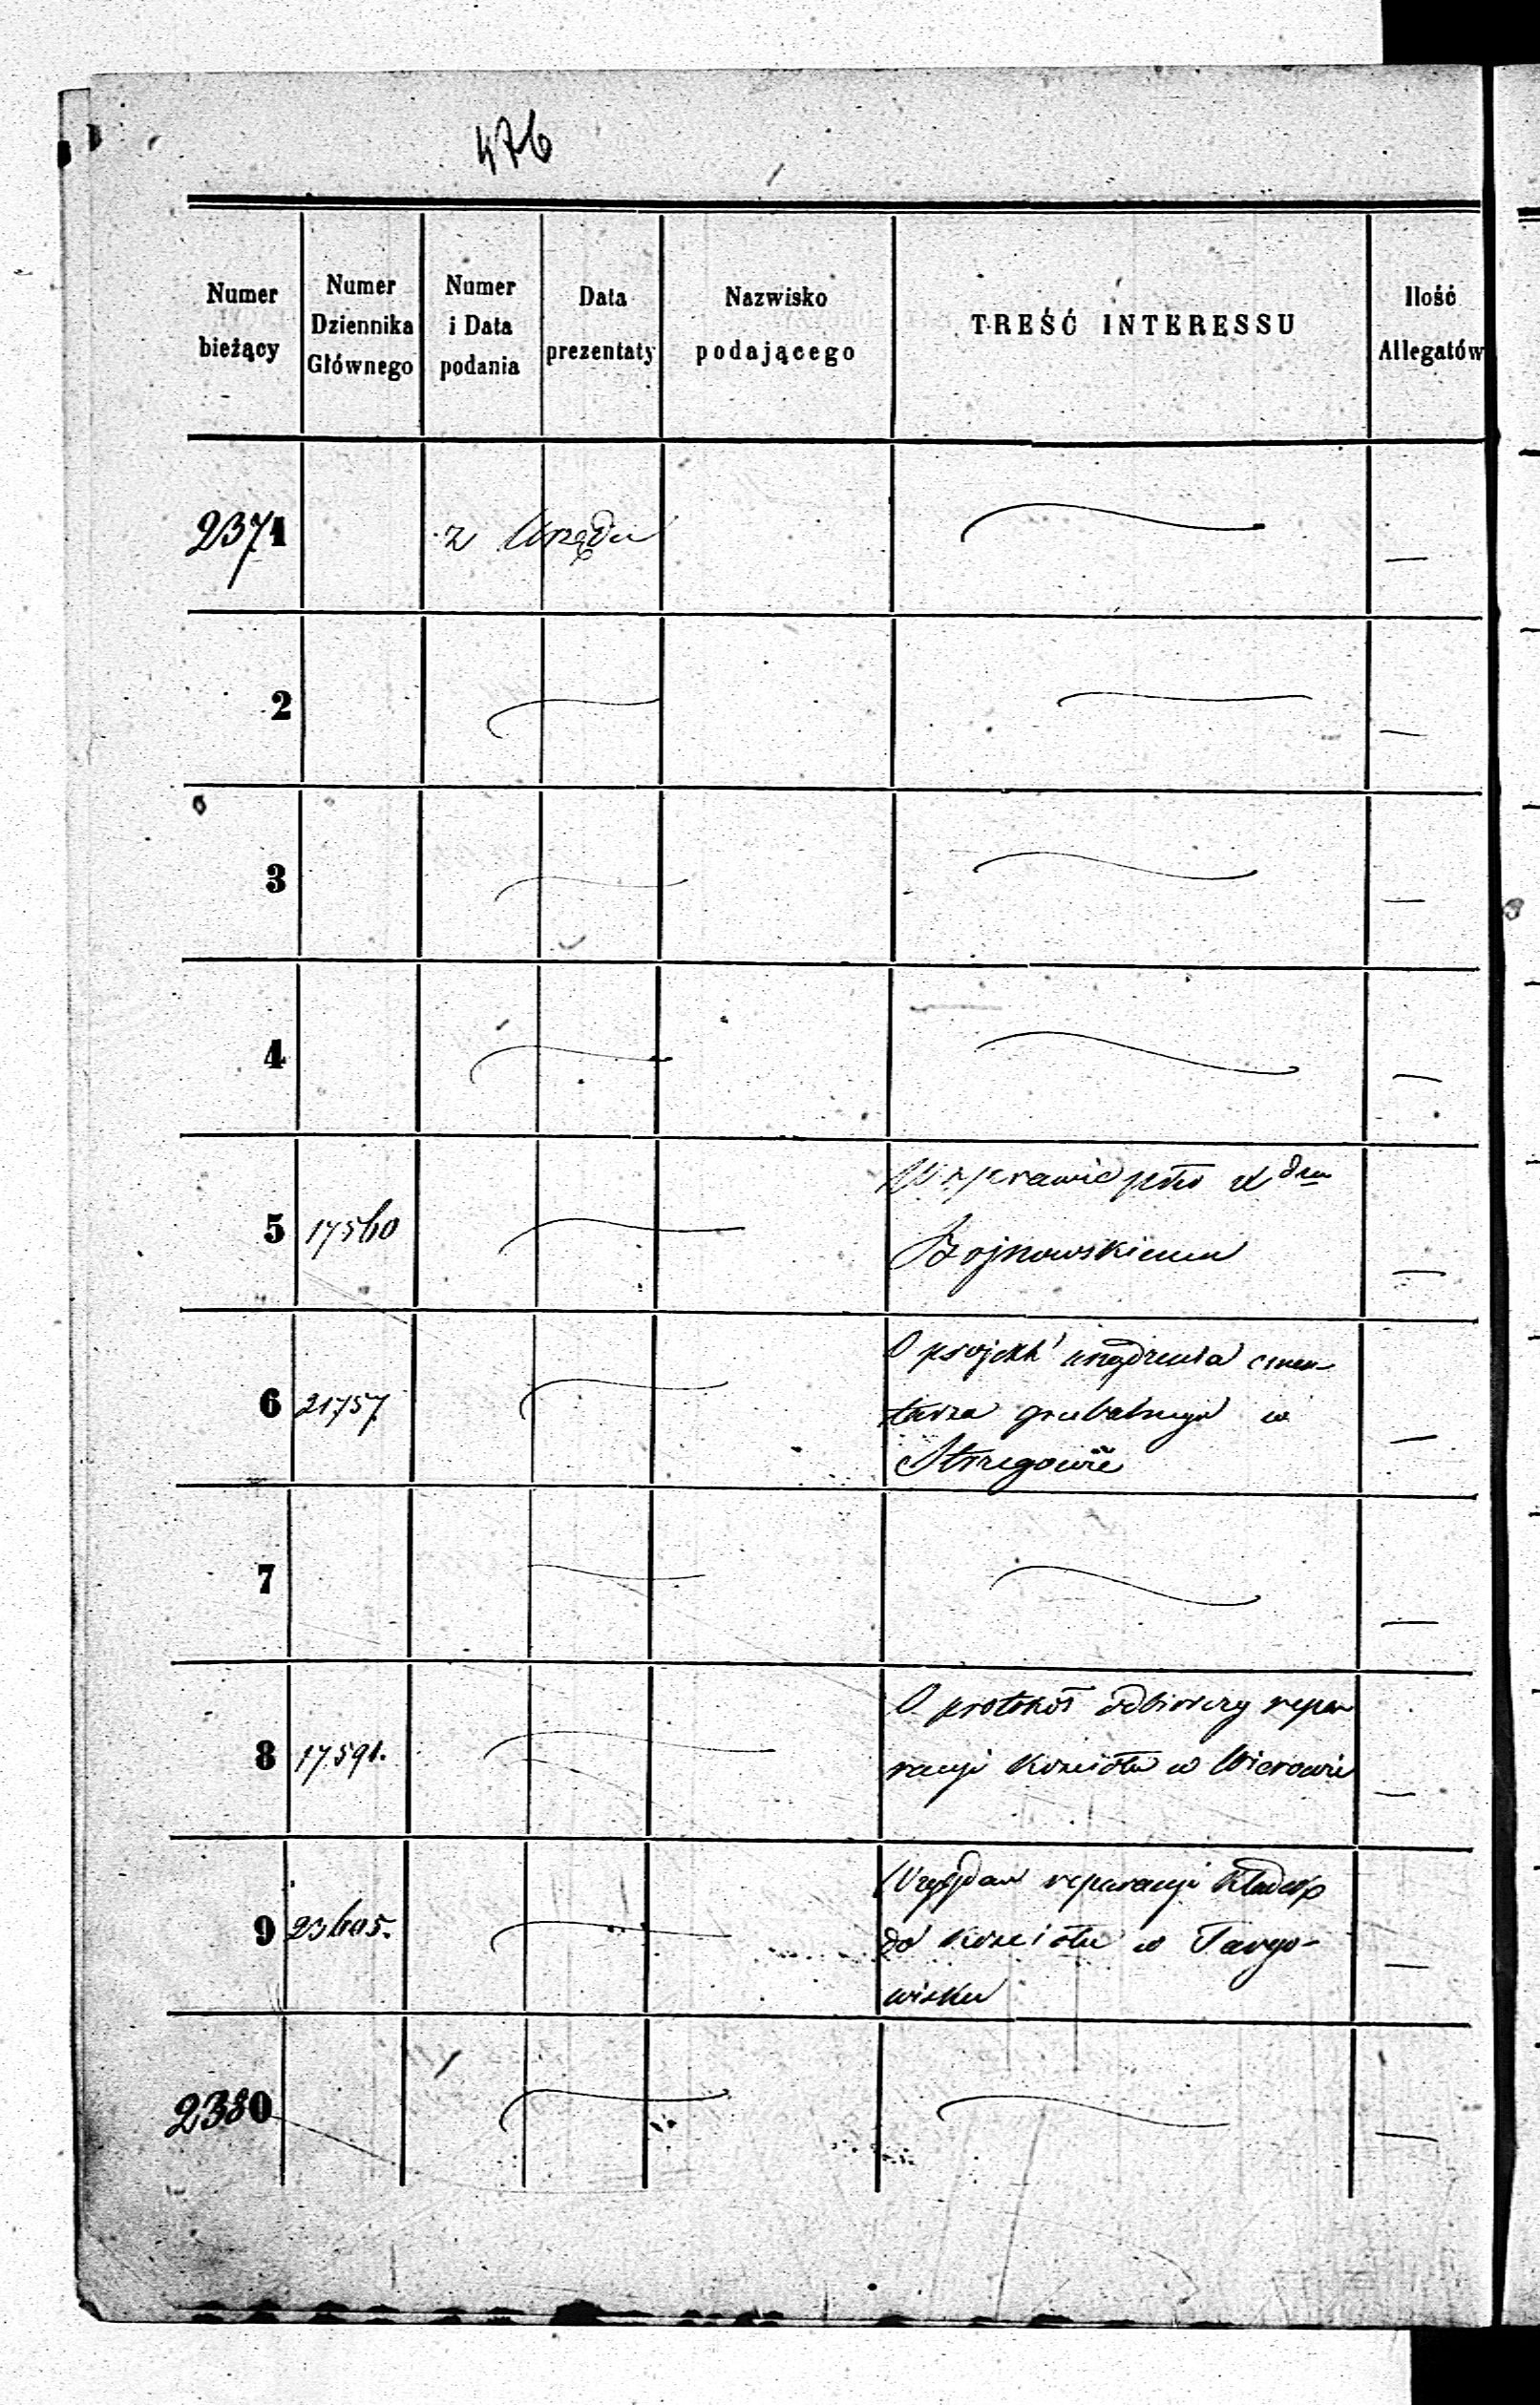 476
Numer bieżący
Numer Dziennika Głównego
Numer i Data podania
Data prezentaty
Nazwisko podającego
TREŚĆ INTERESSU
Ilość Allegatów
2371 z Urzędu —
2 —
3 —
4 —
5 17560 W sprawie pko
Bojnowskiemu —
6 21757 O projekt urządzenia cmen-
tarza grzebalnego w
Strzegowie —
7 —
8 17591. O protokół odbiorczy repa
racyi Kościoła w Wierowie —
9 reparacyi
do Kościoła w Targo-
wisku —
2380 —